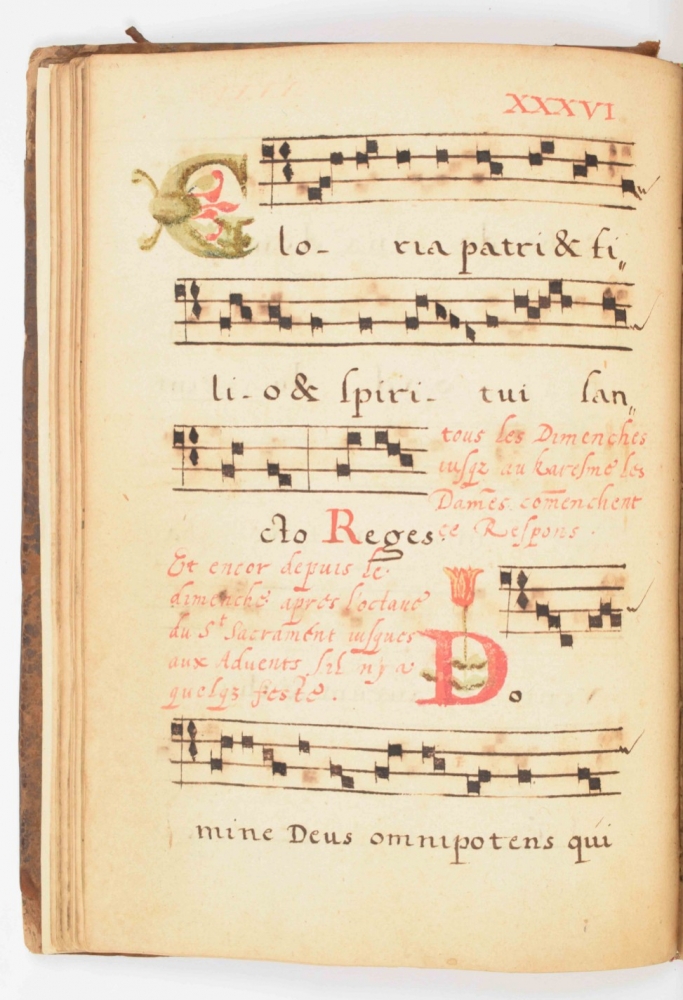 XXXVI
Glo- ria patri & fi„
li- o & spiri- tui san„
tous les Dimenches
iusqz au karesme les
Dam̃es com̄enchent
ce Respons.
cto Reges.
Et encor depuis le
dimenche apres l'octaue
du S.t Sacrament iusques
aux Advents s'il ny a
quelqz feste.
Do
mine Deus omnipotens qui